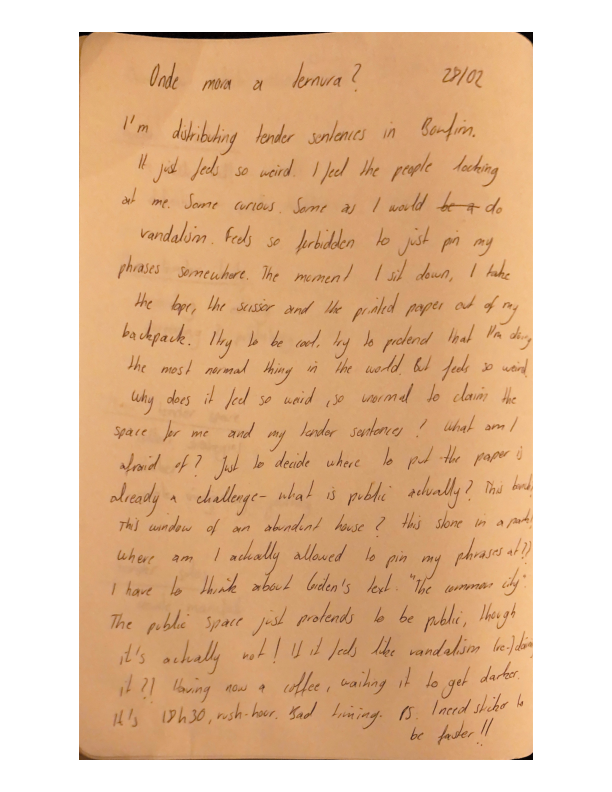 Onde mora a ternura? 28/02
I'm distributing tender sentences in Bonfim.
It just feels so weird. I feel the people looking
at me. Some curious. Some as I would be a do
vandalism. Feels so forbidden to just pin my
phrases somewhere. The moment I sit down, I take
the tape, the scissor and the printed paper out of my
backpack. I try to be cool, try to pretend that I'm doing
the most normal thing in the world. But feels so weird.
Why does it feel so weird, so unormal to claim the
space for me and my tender sentences? What am I
afraid of? Just to decide where to put the paper is
already a challenge - what is public actually? This bench?
This window of an abundant house? this stone in a park?
Where am I actually allowed to pin my phrases at??
I have to think about text. "The common city".
The public space just pretends to be public, though
it's actually not! If it feels like vandalism (re-)claiming
it?! Having now a coffee, waiting it to get darker.
It's 18h30, rush-hour. Bad timing. PS. I need sticker to
be faster!!